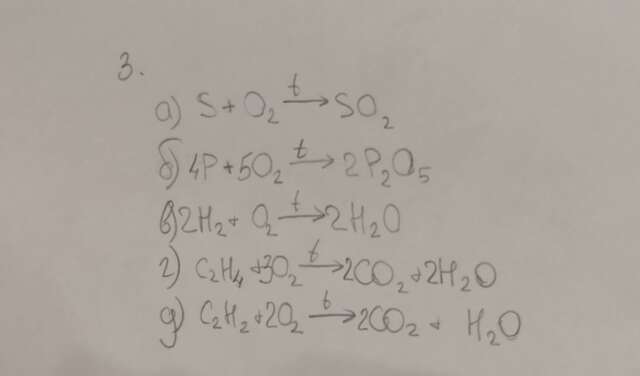 3.
а) S + O₂ →ᵗ SO₂
б) 4P + 5O₂ →ᵗ 2P₂O₅
в) 2H₂ + O₂ →ᵗ 2H₂O
г) C₂H₄ + 3O₂ →ᵗ 2CO₂ + 2H₂O
д) C₂H₂ + 2O₂ →ᵗ 2CO₂ + H₂O